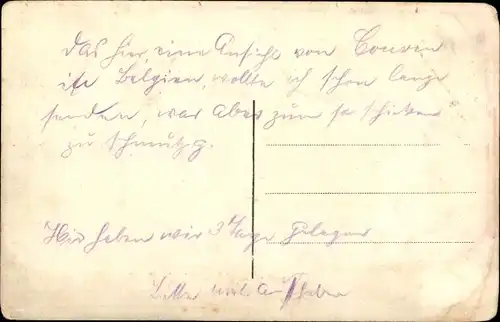 das hier, eine Ansicht von Couvin
ist Belgien, wollte ich schon lange
senden, war aber zum so schicken
zu schmutzg.
Hier haben wir 3 Tage gelegen
Bitte mit Aufheben